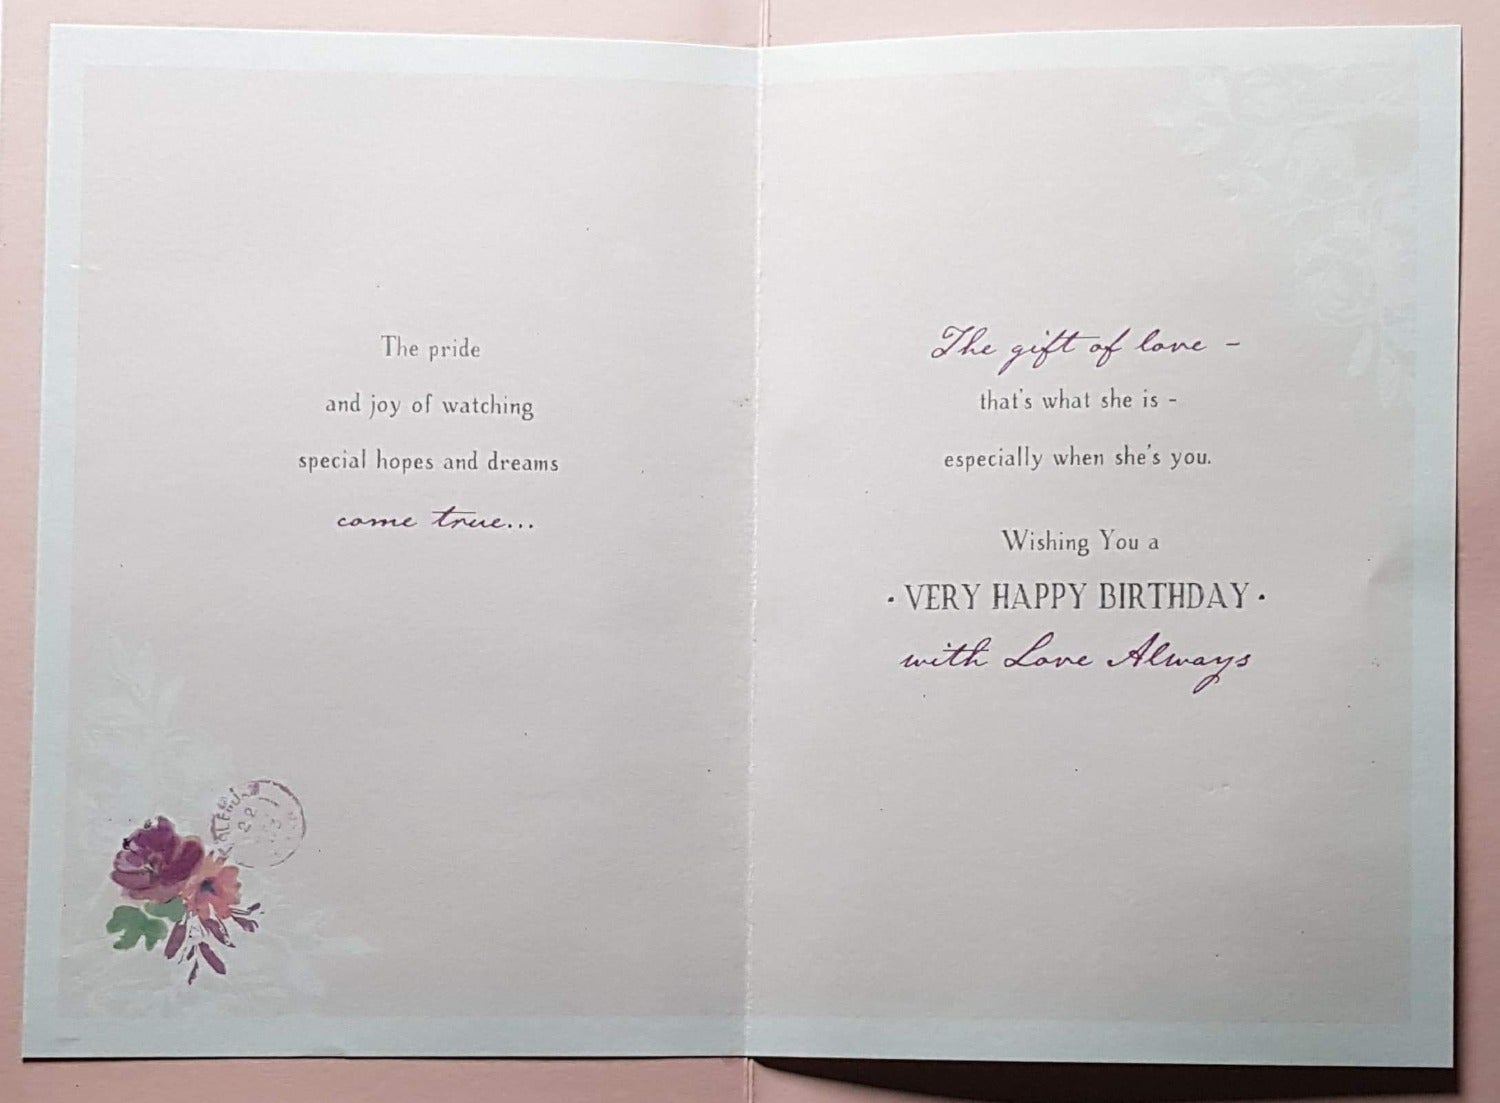 The pride
and joy of watching
special hopes and dreams
come true...
The gift of love -
that's what she is -
especially when she's you.
Wishing You a
· VERY HAPPY BIRTHDAY ·
with Love Always
22